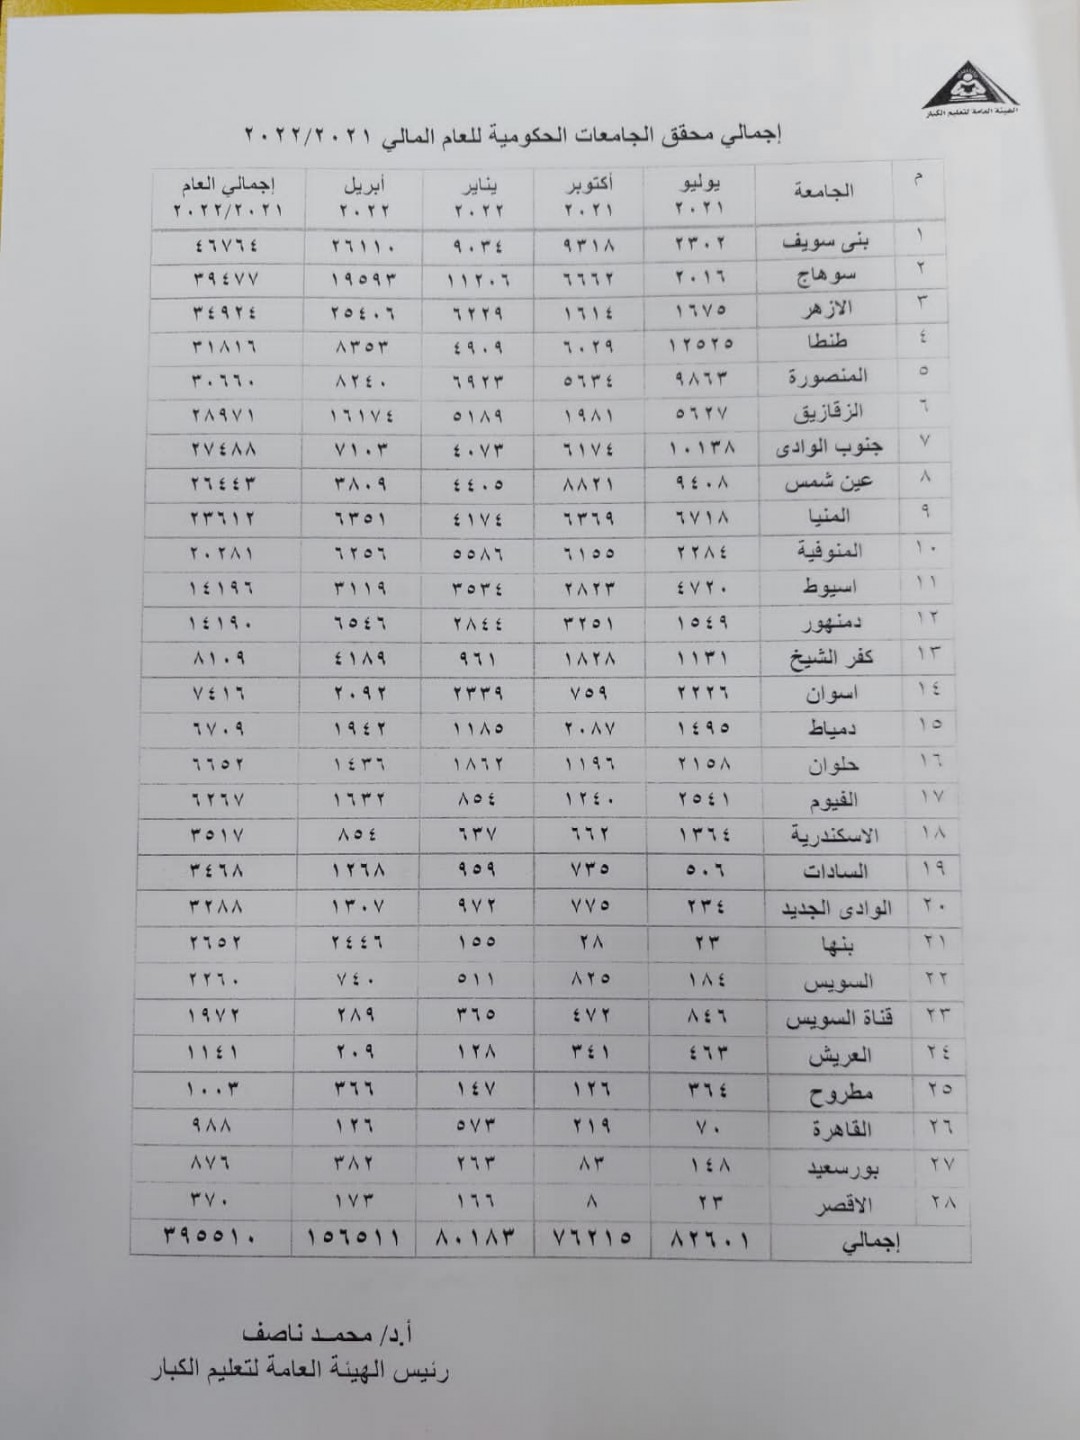 الهيئة العامة لتعليم الكبار
إجمالي محقق الجامعات الحكومية للعام المالي ٢٠٢٢/٢٠٢١
م الجامعة يوليو ٢٠٢١ أكتوبر ٢٠٢١ يناير ٢٠٢٢ أبريل ٢٠٢٢ إجمالي العام ٢٠٢٢/٢٠٢١
١ بنى سويف ٢٣٠٢ ٩٣١٨ ٩٠٣٤ ٢٦١١٠ ٤٦٧٦٤
٢ سوهاج ٢٠١٦ ٦٦٦٢ ١١٢٠٦ ١٩٥٩٣ ٣٩٤٧٧
٣ الازهر ١٦٧٥ ١٦١٤ ٦٢٢٩ ٢٥٤٠٦ ٣٤٩٢٤
٤ طنطا ١٢٥٢٥ ٦٠٢٩ ٤٩٠٩ ٨٣٥٣ ٣١٨١٦
٥ المنصورة ٩٨٦٣ ٥٦٣٤ ٦٩٢٣ ٨٢٤٠ ٣٠٦٦٠
٦ الزقازيق ٥٦٢٧ ١٩٨١ ٥١٨٩ ١٦١٧٤ ٢٨٩٧١
٧ جنوب الوادى ١٠١٣٨ ٦١٧٤ ٤٠٧٣ ٧١٠٣ ٢٧٤٨٨
٨ عين شمس ٩٤٠٨ ٨٨٢١ ٤٤٠٥ ٣٨٠٩ ٢٦٤٤٣
٩ المنيا ٦٧١٨ ٦٣٦٩ ٤١٧٤ ٦٣٥١ ٢٣٦١٢
١٠ المنوفية ٢٢٨٤ ٦١٥٥ ٥٥٨٦ ٦٢٥٦ ٢٠٢٨١
١١ اسيوط ٤٧٢٠ ٢٨٢٣ ٣٥٣٤ ٣١١٩ ١٤١٩٦
١٢ دمنهور ١٥٤٩ ٣٢٥١ ٢٨٤٤ ٦٥٤٦ ١٤١٩٠
١٣ كفر الشيخ ١١٣١ ١٨٢٨ ٩٦١ ٤١٨٩ ٨١٠٩
١٤ اسوان ٢٢٢٦ ٧٥٩ ٢٣٣٩ ٢٠٩٢ ٧٤١٦
١٥ دمياط ١٤٩٥ ٢٠٨٧ ١١٨٥ ١٩٤٢ ٦٧٠٩
١٦ حلوان ٢١٥٨ ١١٩٦ ١٨٦٢ ١٤٣٦ ٦٦٥٢
١٧ الفيوم ٢٥٤١ ١٢٤٠ ٨٥٤ ١٦٣٢ ٦٢٦٧
١٨ الاسكندرية ١٣٦٤ ٦٦٢ ٦٣٧ ٨٥٤ ٣٥١٧
١٩ السادات ٥٠٦ ٧٣٥ ٩٥٩ ١٢٦٨ ٣٤٦٨
٢٠ الوادى الجديد ٢٣٤ ٧٧٥ ٩٧٢ ١٣٠٧ ٣٢٨٨
٢١ بنها ٢٣ ٢٨ ١٥٥ ٢٤٤٦ ٢٦٥٢
٢٢ السويس ١٨٤ ٨٢٥ ٥١١ ٧٤٠ ٢٢٦٠
٢٣ قناة السويس ٨٤٦ ٤٧٢ ٣٦٥ ٢٨٩ ١٩٧٢
٢٤ العريش ٤٦٣ ٣٤١ ١٢٨ ٢٠٩ ١١٤١
٢٥ مطروح ٣٦٤ ١٢٦ ١٤٧ ٣٦٦ ١٠٠٣
٢٦ القاهرة ٧٠ ٢١٩ ٥٧٣ ١٢٦ ٩٨٨
٢٧ بورسعيد ١٤٨ ٨٣ ٢٦٣ ٣٨٢ ٨٧٦
٢٨ الاقصر ٢٣ ٨ ١٦٦ ١٧٣ ٣٧٠
إجمالي ٨٢٦٠١ ٧٦٢١٥ ٨٠١٨٣ ١٥٦٥١١ ٣٩٥٥١٠
أ.د/ محمد ناصف
رئيس الهيئة العامة لتعليم الكبار